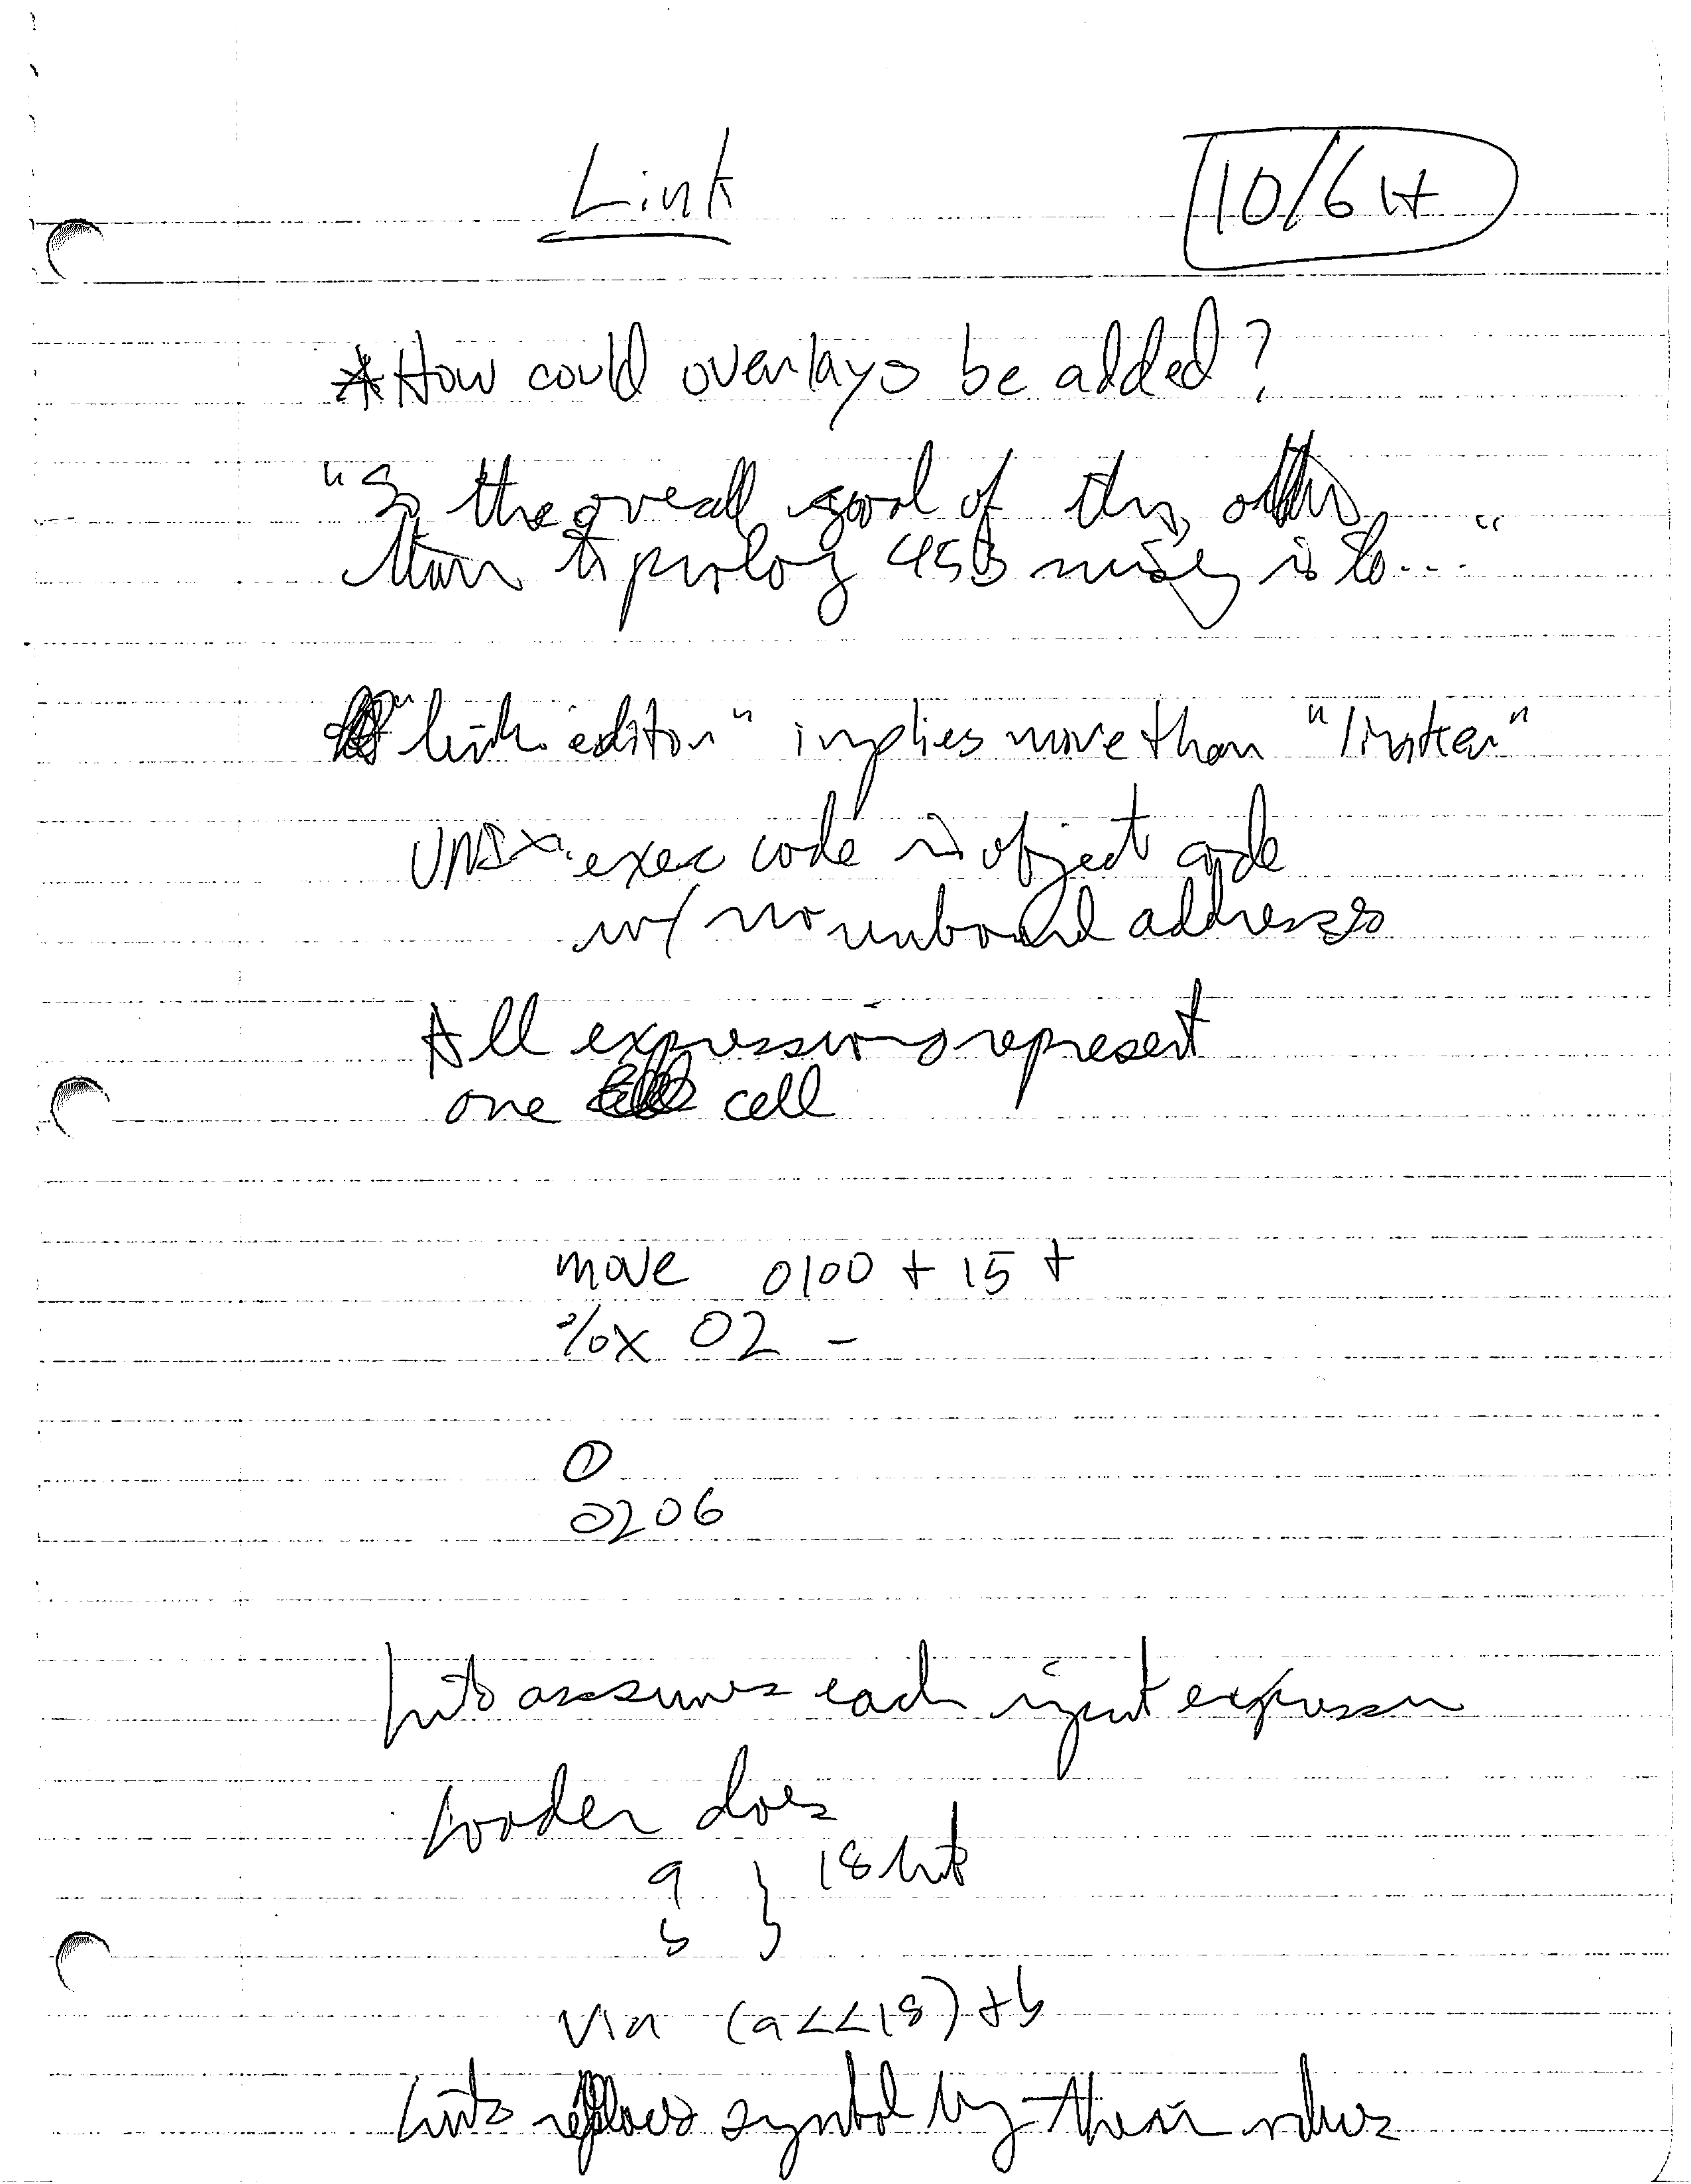 Link
10/6 H
*How could overlays be added?
"So the overall goal of this, other
than to prolong 453 misery is to..."
"link editor" implies more than "linker"
UNIX: exec code is object code
w/ no unbound addresses
All expressions represent
one cell
move 0100 + 15 +
%x 02 -
0
0206
assumes each input expression
Loader does
a } 18 bit
b
via (a<<18)+b
replaces symbol by their values